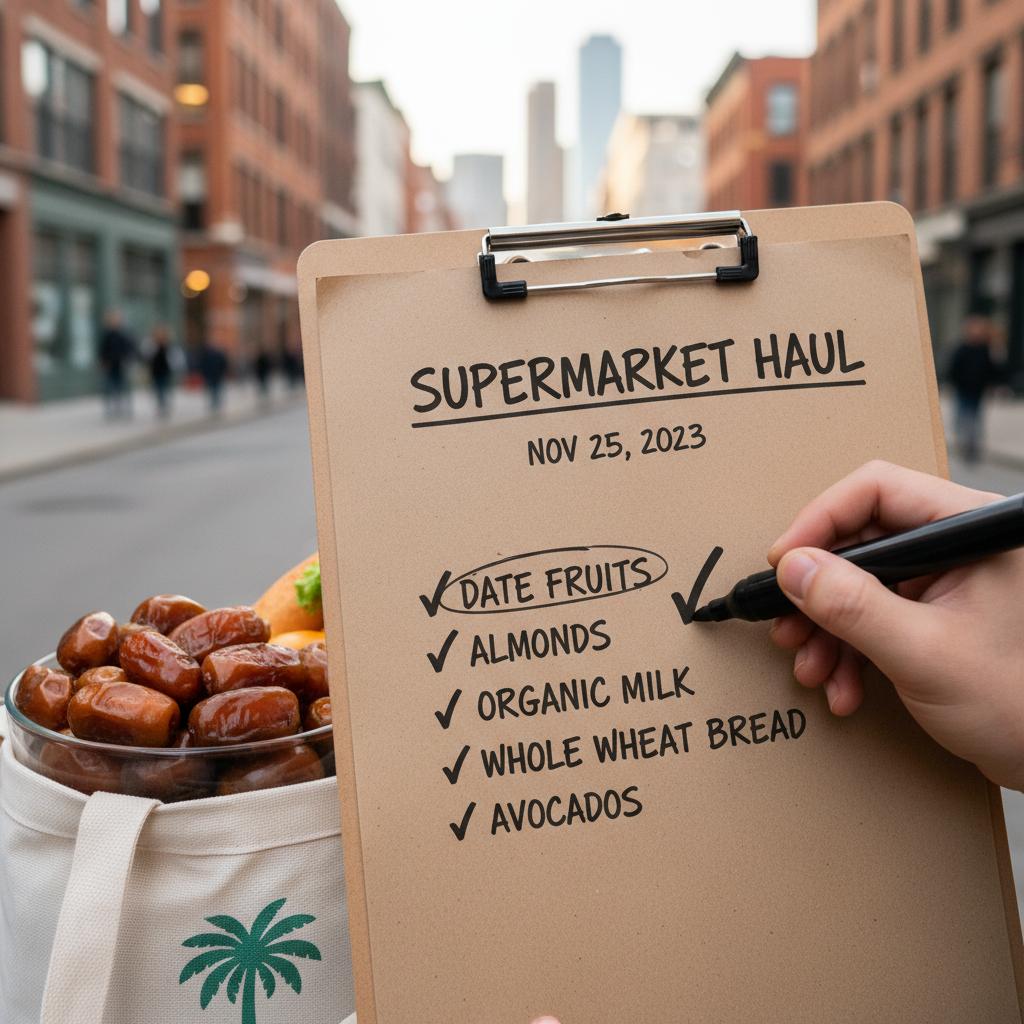 SUPERMARKET HAUL
NOV 25, 2023
✓ DATE FRUITS ✓
✓ ALMONDS
✓ ORGANIC MILK
✓ WHOLE WHEAT BREAD
✓ AVOCADOS